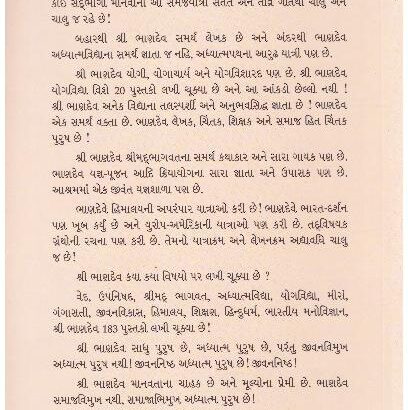 કોઈ સદ્ભાગી માનવીની આ સમજયાત્રા સતત અને તીવ્ર ગતિથી ચાલુ અને
ચાલુ જ રહે છે!
બહારથી શ્રી ભાણદેવ સમર્થ લેખક છે અને અંદરથી ભાણદેવ
અધ્યાત્મવિદ્યાના સમર્થ જ્ઞાતા જ નહિ, અધ્યાત્મપથના આરૂઢ યાત્રી પણ છે.
શ્રી ભાણદેવ યોગી, યોગાચાર્ય અને યોગવિશારદ પણ છે. શ્રી ભાણદેવ
યોગવિદ્યા વિશે 20 પુસ્તકો લખી ચૂક્યા છે અને આ આંકડો છેલ્લો નથી !
શ્રી ભાણદેવ અનેક વિદ્યાના તલસ્પર્શી અને અનુભવસિદ્ધ જ્ઞાતા છે ! ભાણદેવ
એક સમર્થ વક્તા છે. ભાણદેવ લેખક, ચિંતક, શિક્ષક અને સમાજ હિત ચિંતક
પુરુષ છે !
શ્રી ભાણદેવ શ્રીમદ્ભાગવતના સમર્થ કથાકાર અને સારા ગાયક પણ છે.
ભાણદેવ યજ્ઞ-પૂજન આદિ ક્રિયાયોગના સારા જ્ઞાતા અને ઉપાસક પણ છે.
આશ્રમમાં એક જીવંત યજ્ઞશાળા પણ છે.
ભાણદેવે હિમાલયની અપરંપાર યાત્રાઓ કરી છે! ભાણદેવે ભારત-દર્શન
પણ ખૂબ કર્યું છે અને યુરોપ-અમેરિકાની યાત્રાઓ પણ કરી છે. તદ્‌વિષયક
ગ્રંથોની રચના પણ કરી છે. તેમનો યાત્રાક્રમ અને લેખનક્રમ અદ્યાવધિ ચાલુ
જ છે!
શ્રી ભાણદેવ ક્યા ક્યા વિષયો પર લખી ચૂક્યા છે ?
વેદ, ઉપનિષદ, શ્રીમદ્ ભાગવત, અધ્યાત્મવિદ્યા, યોગવિદ્યા, મીરાં,
ગંગાસતી, જીવનવિકાસ, હિમાલય, શિક્ષણ, હિન્દુધર્મ, ભારતીય મનોવિજ્ઞાન,
શ્રી ભાણદેવ 183 પુસ્તકો લખી ચૂક્યા છે!
શ્રી ભાણદેવ સાધુ પુરુષ છે, અધ્યાત્મ પુરુષ છે, પરંતુ જીવનવિમુખ
અધ્યાત્મ પુરુષ નથી! જીવનનિષ્ઠ અધ્યાત્મ પુરુષ છે! જીવનનિષ્ઠ!
શ્રી ભાણદેવ માનવતાના ચાહક છે અને મૂલ્યોના પ્રેમી છે. ભાણદેવ
સમાજવિમુખ નથી, સમાજાભિમુખ અધ્યાત્મ પુરુષ છે!